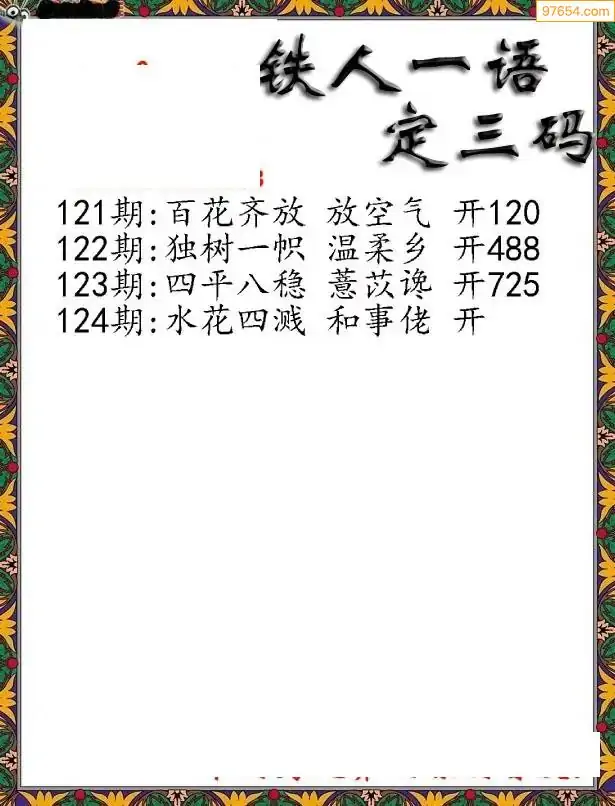 97654.com
铁人一语
定三码
121期:百花齐放 放空气 开120
122期:独树一帜 温柔乡 开488
123期:四平八稳 薏苡谗 开725
124期:水花四溅 和事佬 开